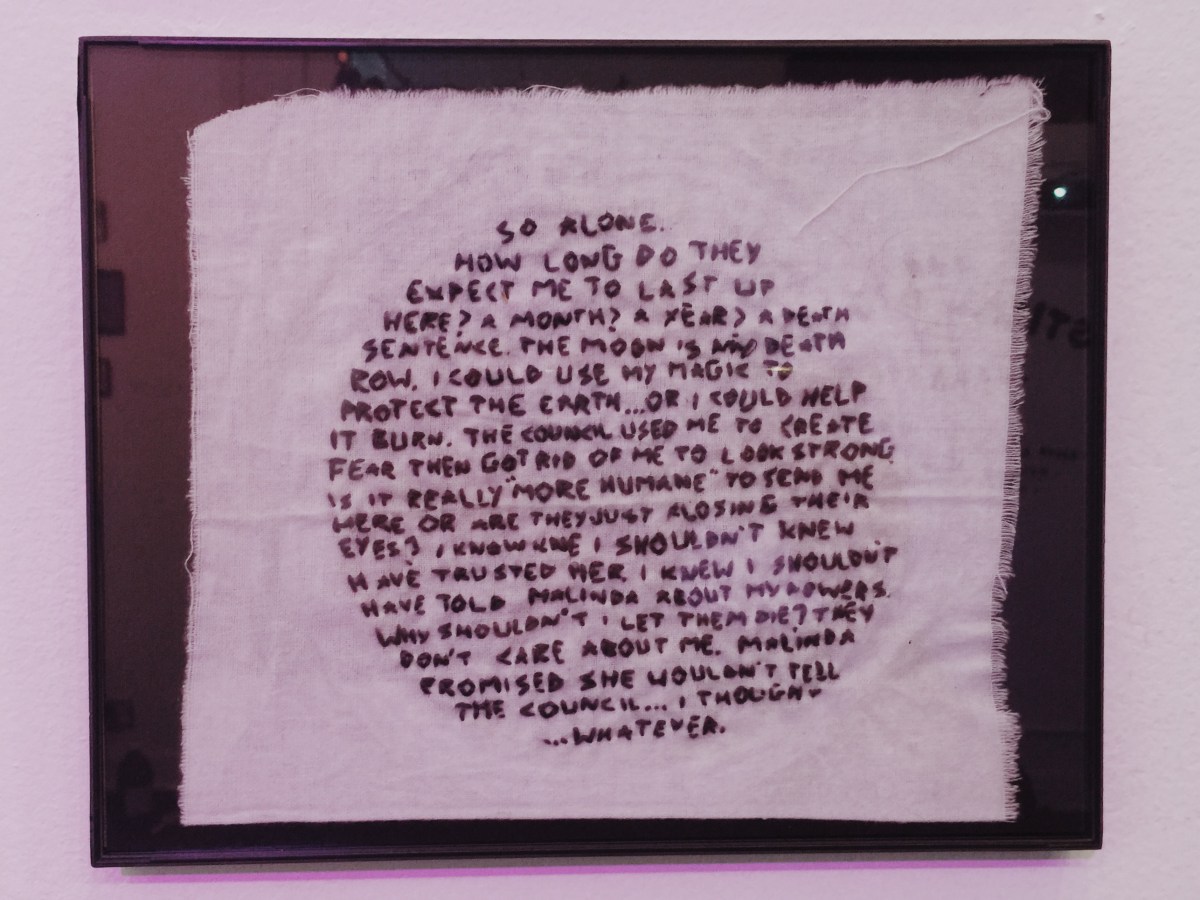 SO ALONE.
HOW LONG DO THEY
EXPECT ME TO LAST UP
HERE? A MONTH? A YEAR? A DEATH
SENTENCE. THE MOON IS MY DEATH
ROW. I COULD USE MY MAGIC TO
PROTECT THE EARTH...OR I COULD HELP
IT BURN. THE COUNCIL USED ME TO CREATE
FEAR THEN GOT RID OF ME TO LOOK STRONG
IS IT REALLY "MORE HUMANE" TO SEND ME
HERE OR ARE THEY JUST CLOSING THEIR
EYES? I KNEW I SHOULDN'T KNEW
HAVE TRUSTED HER. I KNEW I SHOULDN'T
HAVE TOLD MALINDA ABOUT MY POWERS.
WHY SHOULDN'T I LET THEM DIE? THEY
DON'T CARE ABOUT ME. MALINDA
PROMISED SHE WOULDN'T TELL
THE COUNCIL... I THOUGHT
...WHATEVER.